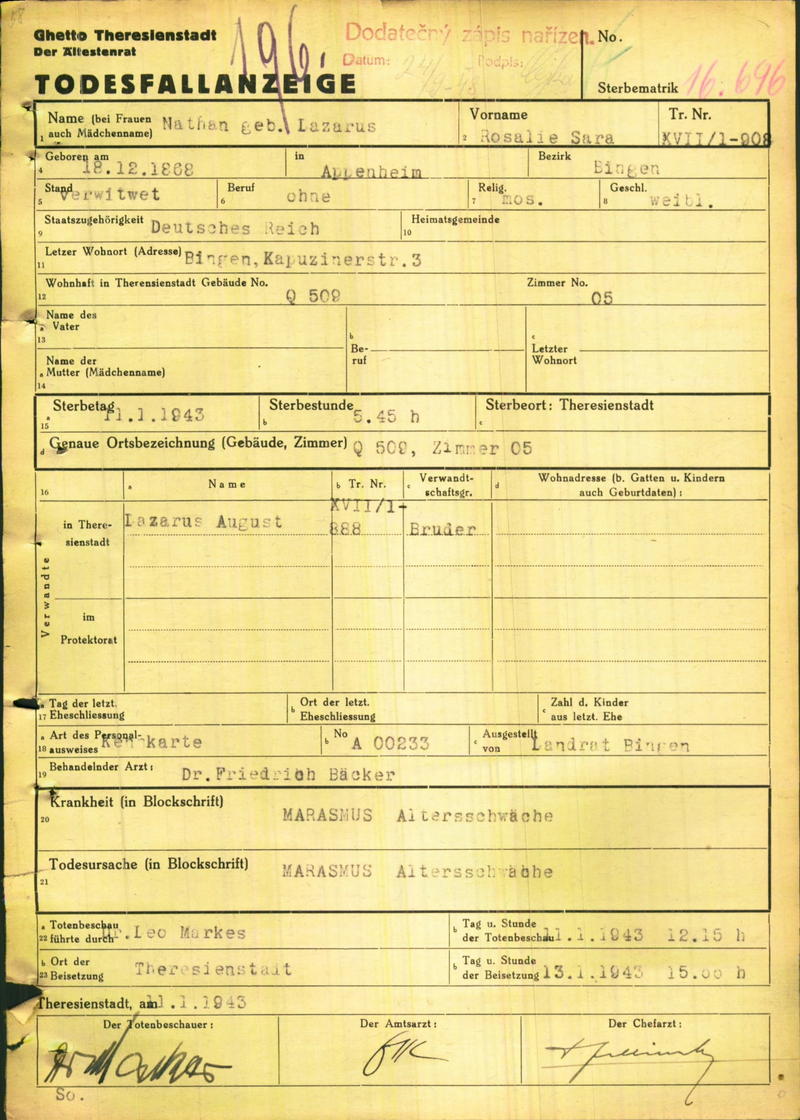 Ghetto Theresienstadt
Der Ältestenrat
TODESFALLANZEIGE
Dodatečný zápis nařízen.
Datum: Podpis:
No.
Sterbematrik 16.696
1 Name (bei Frauen auch Mädchenname) Nathan geb. Lazarus
2 Vorname Rosalie Sara
Tr. Nr. XVII/1-908
4 Geboren am 18.12.1868 in Appenheim Bezirk Bingen
5 Stand Verwitwet 6 Beruf ohne 7 Relig. mos. 8 Geschl. weibl.
9 Staatszugehörigkeit Deutsches Reich 10 Heimatsgemeinde
11 Letzer Wohnort (Adresse) Bingen, Kapuzinerstr.3
12 Wohnhaft in Theresienstadt Gebäude No. Q 509 Zimmer No. 05
13 a Name des Vater
b Beruf
c Letzter Wohnort
14 a Name der Mutter (Mädchenname)
15 a Sterbetag 11.1.1943 b Sterbestunde 5.45 h c Sterbeort: Theresienstadt
d Genaue Ortsbezeichnung (Gebäude, Zimmer) Q 509, Zimmer 05
16 a Name b Tr. Nr. c Verwandtschaftsgr. d Wohnadresse (b. Gatten u. Kindern auch Geburtdaten) :
Verwandte
in Theresienstadt Lazarus August XVII/1-888 Bruder
im Protektorat
17 a Tag der letzt. Eheschliessung b Ort der letzt. Eheschliessung c Zahl d. Kinder aus letzt. Ehe
18 a Art des Personalausweises Kennkarte b No A 00233 c Ausgestellt von Landrat Bingen
19 Behandelnder Arzt : Dr.Friedrich Bäcker
20 Krankheit (in Blockschrift) MARASMUS Altersschwäche
21 Todesursache (in Blockschrift) MARASMUS Altersschwäche
22 a Totenbeschau führte durch Dr.Leo Markes b Tag u. Stunde der Totenbeschau 11.1.1943 12.15 h
23 b Ort der Beisetzung Theresienstadt b Tag u. Stunde der Beisetzung 13.1.1943 15.00 h
Theresienstadt, am 11.1.1943
Der Totenbeschauer : Der Amtsarzt : Der Chefarzt :
So.